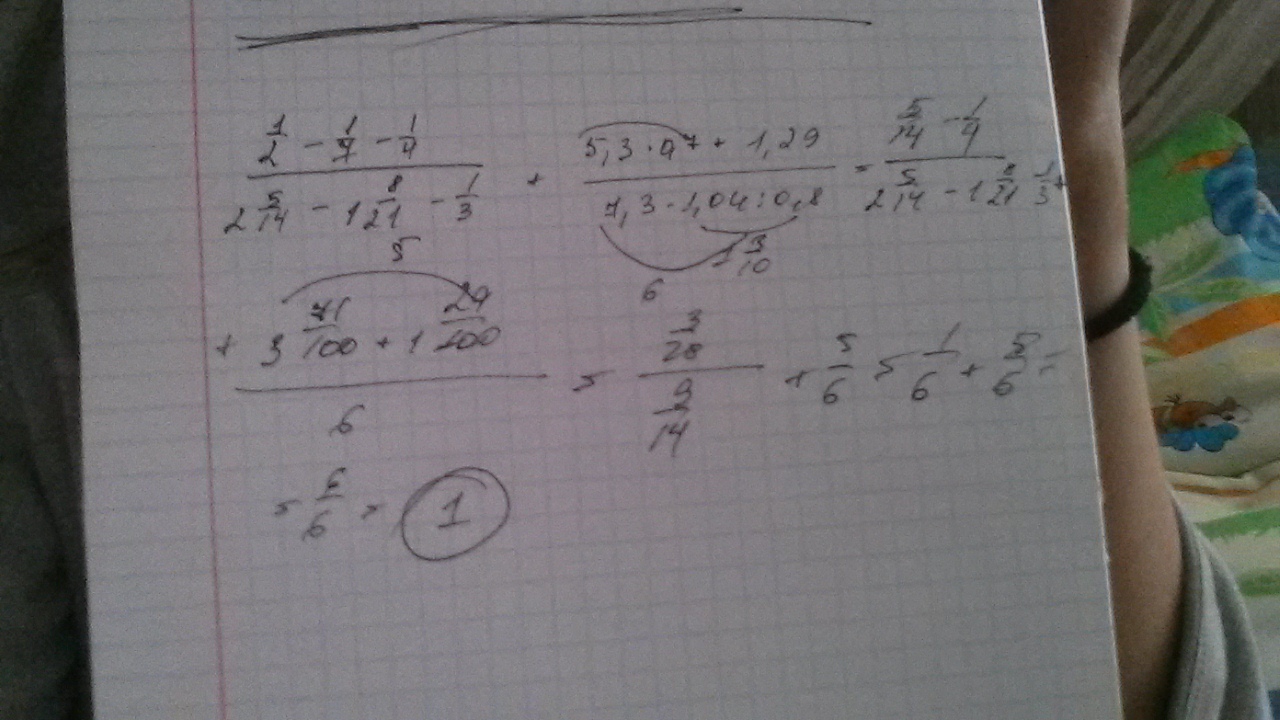 1/2 - 1/7 - 1/4 / 2 5/14 - 1 8/21 - 1/3 + 5,3 · 0,7 + 1,29 / 7,3 - 1,04 : 0,8 = 5/14 - 1/4 / 2 5/14 - 1 8/21 - 1/3 +
1 3/10
5
6
+ 3 71/100 + 1 29/100 / 6 = 3/28 / 9/14 + 5/6 = 1/6 + 5/6 =
= 6/6 = 1